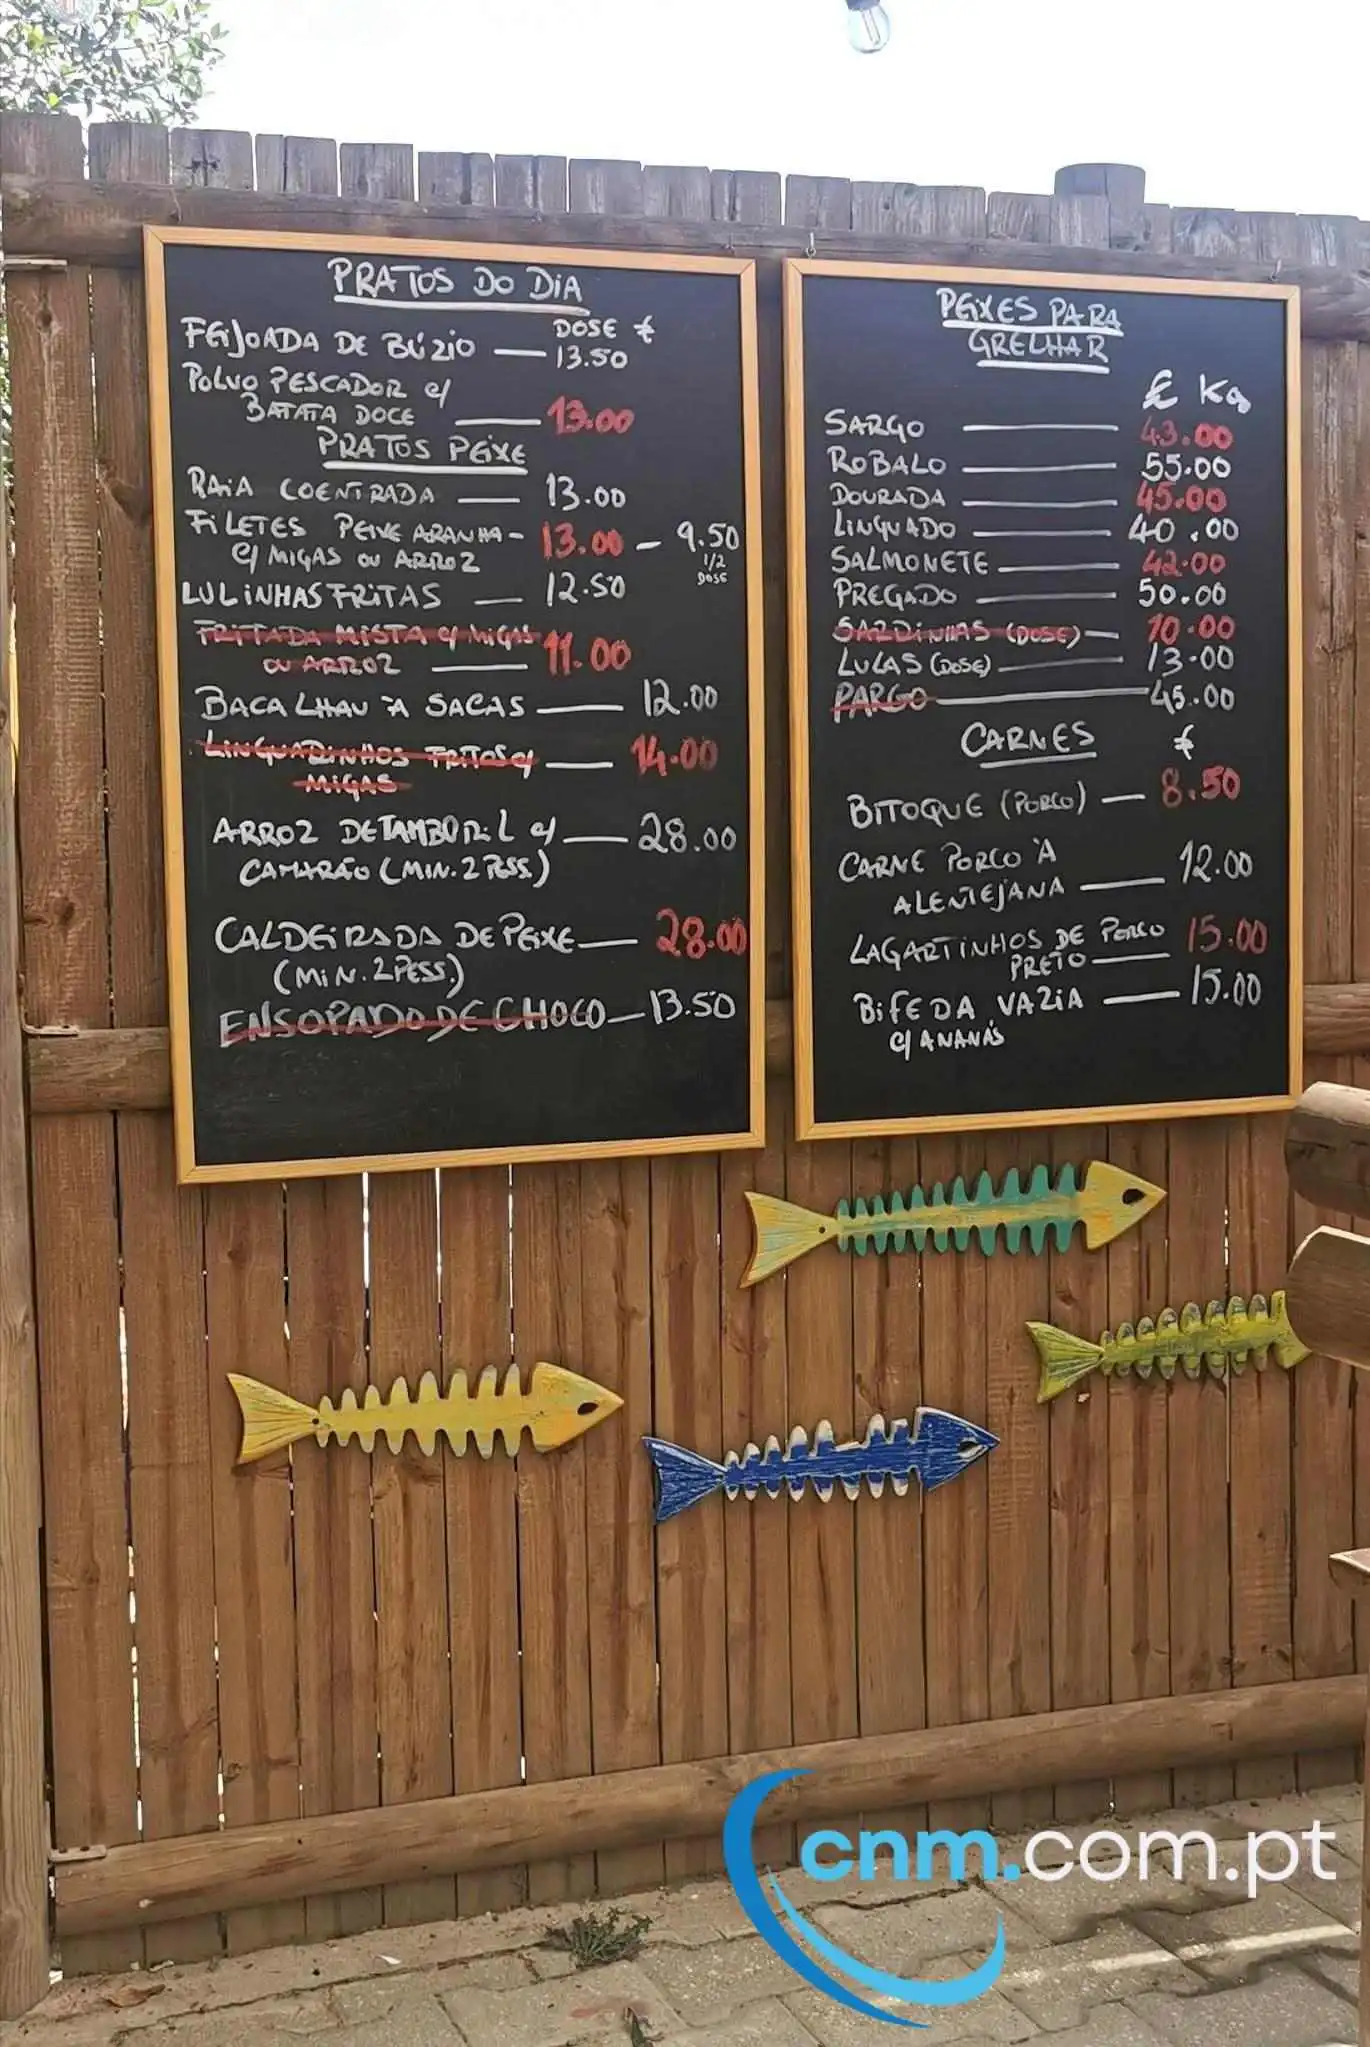 PRATOS DO DIA
DOSE €
FEIJOADA DE BÚZIO — 13.50
POLVO PESCADOR c/
BATATA DOCE — 13.00
PRATOS PEIXE
RAIA COENTRADA — 13.00
FILETES PEIXE ARANHA - 13.00 - 9.50
c/ MIGAS OU ARROZ 1/2
DOSE
LULINHAS FRITAS — 12.50
FRITADA MISTA c/ MIGAS
OU ARROZ — 11.00
BACALHAU À SACAS — 12.00
LINGUADINHOS FRITOS c/ — 14.00
MIGAS
ARROZ DE TAMBORIL c/ — 28.00
CAMARÃO (MIN. 2 PESS.)
CALDEIRADA DE PEIXE — 28.00
(MIN. 2 PESS.)
ENSOPADO DE CHOCO — 13.50
PEIXES PARA
GRELHAR
€ KG
SARGO — 43.00
ROBALO — 55.00
DOURADA — 45.00
LINGUADO — 40.00
SALMONETE — 42.00
PREGADO — 50.00
SARDINHAS (DOSE) — 10.00
LULAS (DOSE) — 13.00
PARGO — 45.00
CARNES €
BITOQUE (PORCO) — 8.50
CARNE PORCO À
ALENTEJANA — 12.00
LAGARTINHOS DE PORCO 15.00
PRETO —
BIFE DA VAZIA — 15.00
c/ ANANÁS
cnm.com.pt